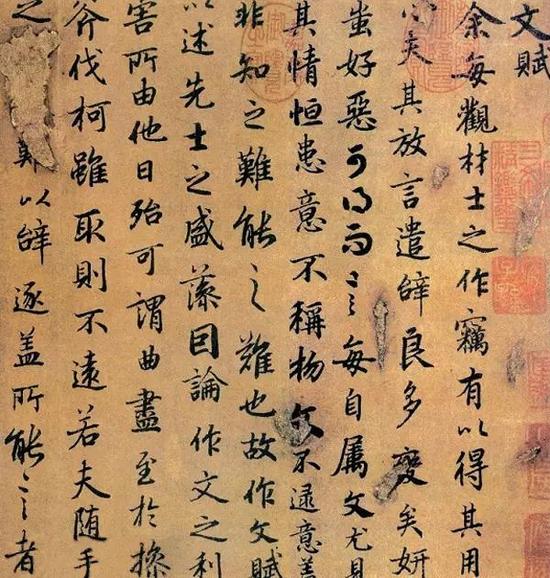 文賦
余每觀材士之作竊有以得其用
心矣其放言遣辭良多變矣妍
蚩好惡可得而言每自属文尤見
其情恒患意不稱物文不逮意盖
非知之難能之難也故作文賦
以述先士之盛藻因論作文之利
害所由他日殆可謂曲盡至於操
斧伐柯雖取則不遠若夫随手
之難以辭逐盖所能言者